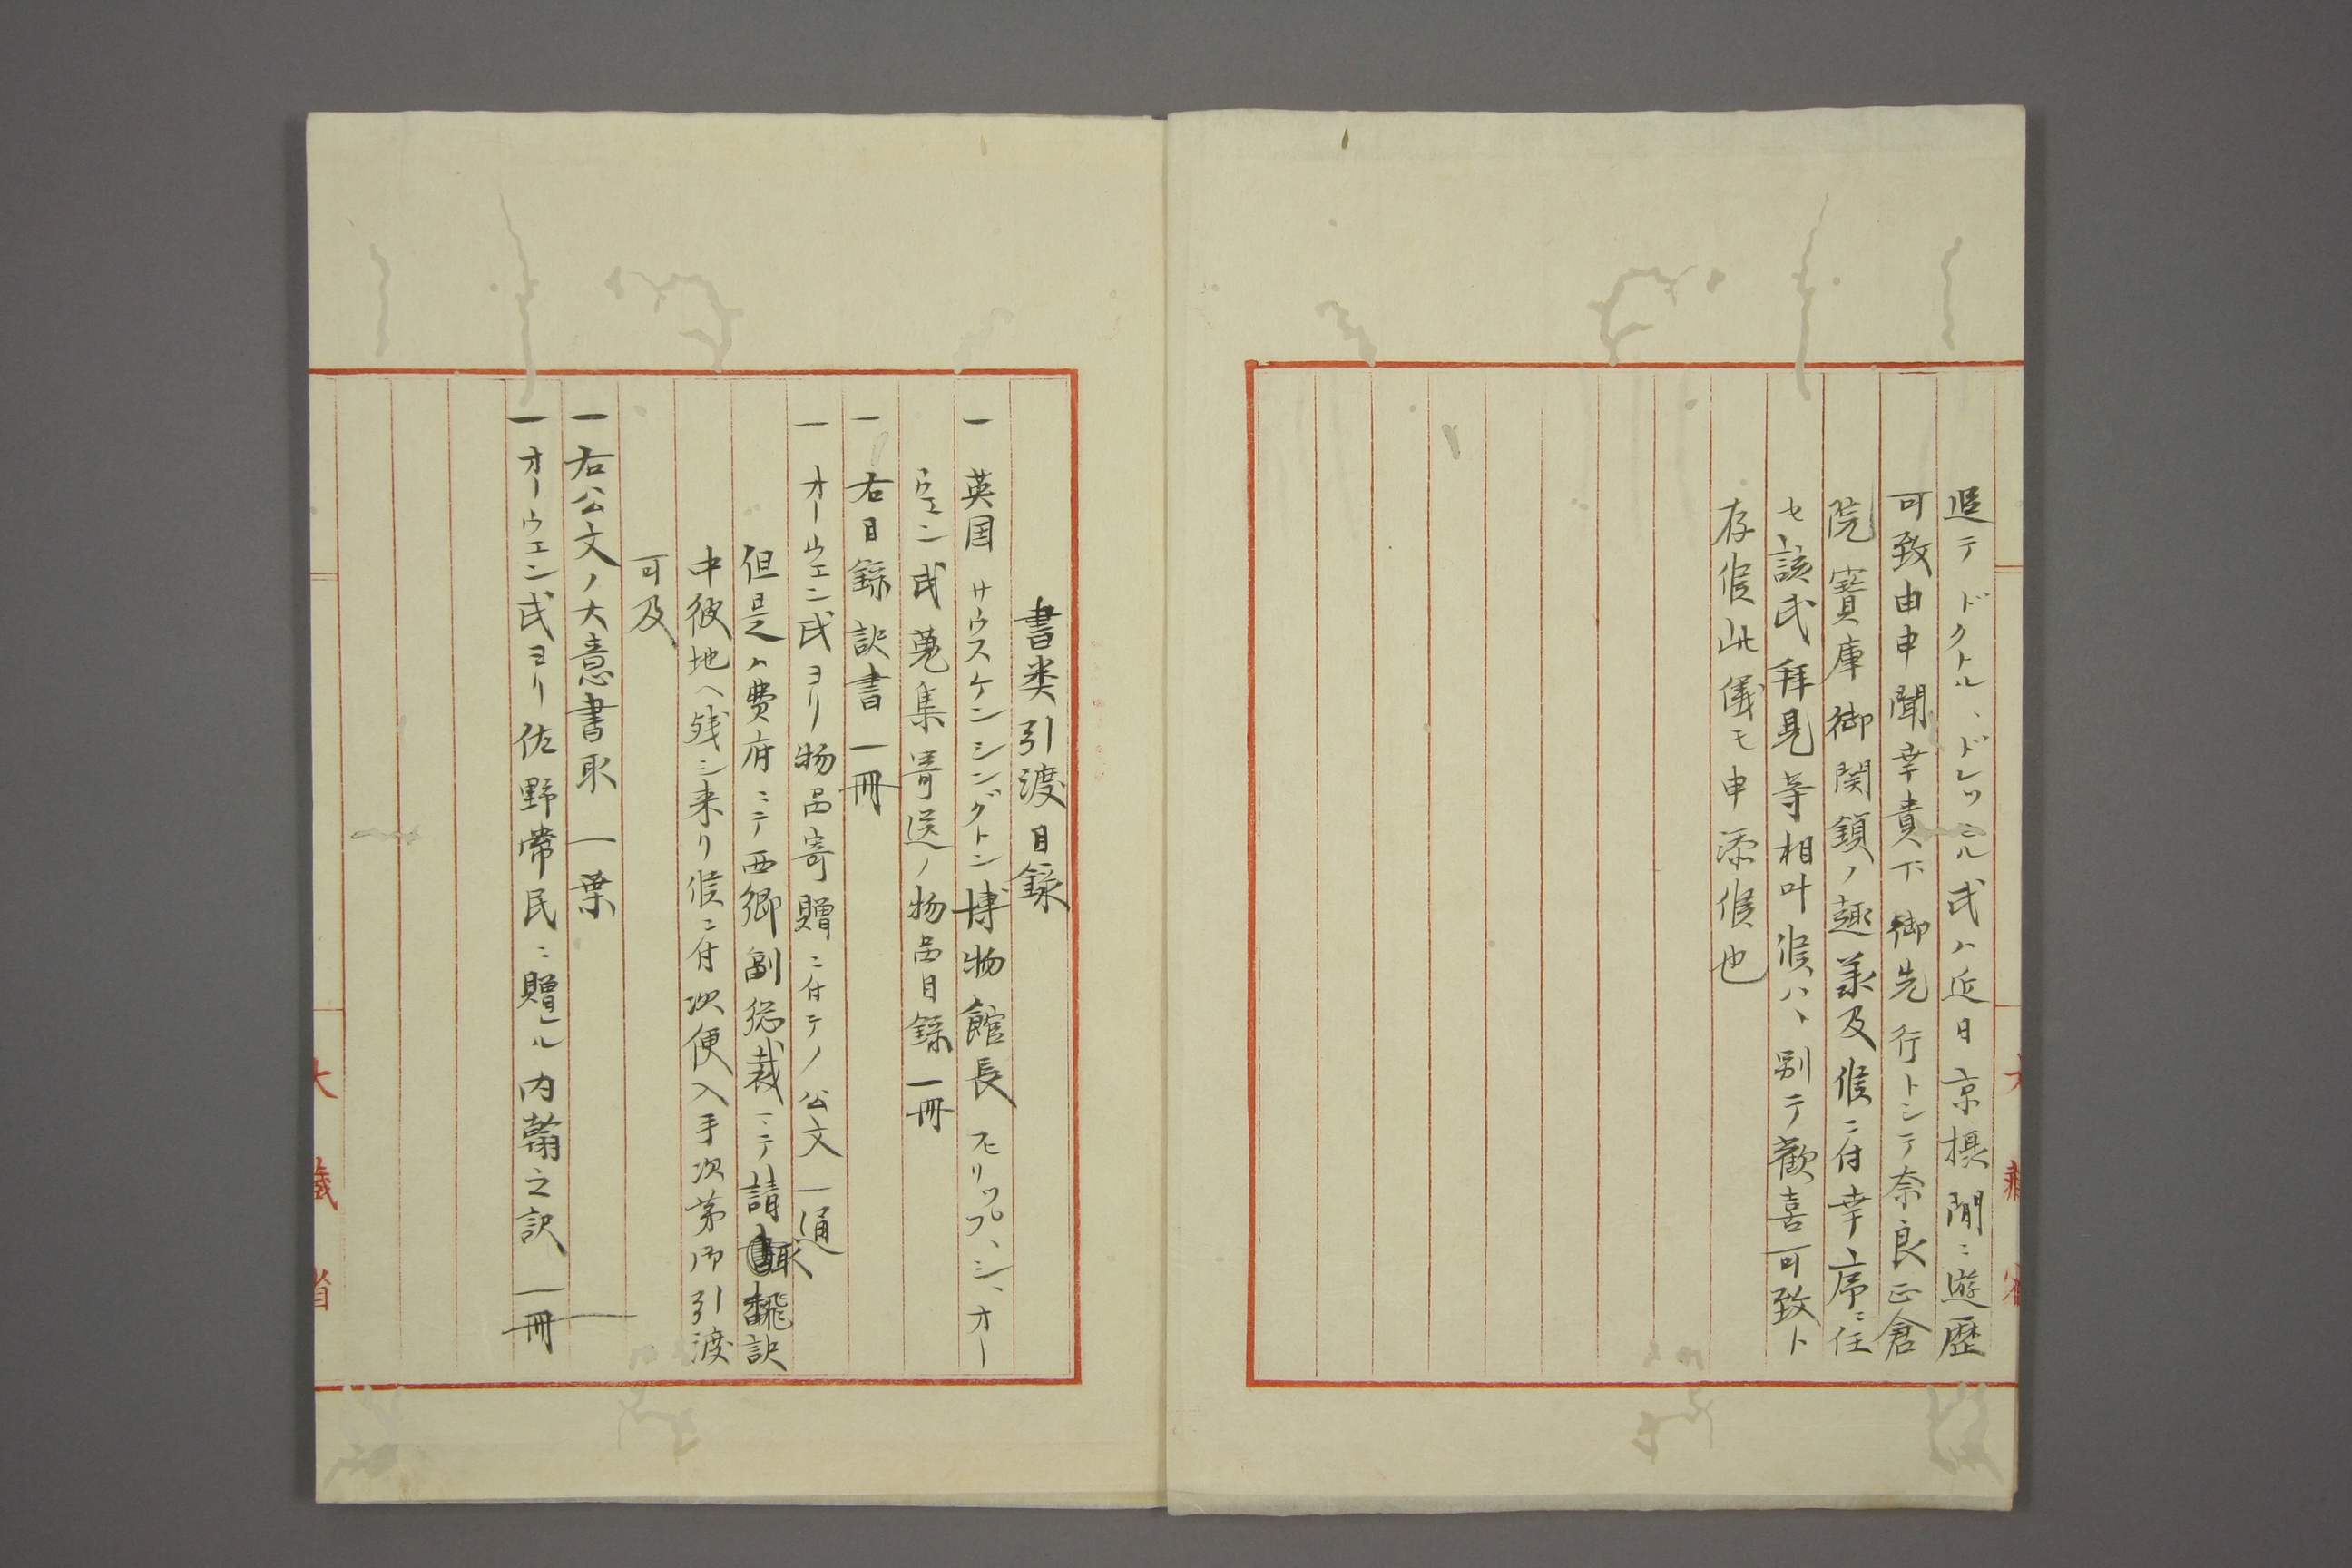 追テドクトル、ドレッセル氏ハ近日京摂間ニ遊歴
可致由申聞幸貴下御先行トシテ奈良正倉
院寳庫御関鎖ノ趣義及候ニ付幸上序ニ任
セ該氏拝見等相叶候ハヽ別テ歓喜可致ト
存候此儀モ申添候也
書类引渡目録
一 英国サウスケンシングトン博物館長フヒリップ、シ、オー
ウエン氏蒐集寄送ノ物品目録一冊
一 右目録訳書一冊
一 オーウエン氏ヨリ物品寄贈ニ付テノ公文一通
但是ハ費府ニテ西郷副総裁ニテ請取翻訳
中彼地ヘ残シ来リ候ニ付次便入手次第御引渡
可及
一 右公文ノ大意書取 一葉
一 オーウエン氏ヨリ佐野常民ニ贈ル内翰之訳 一冊
大藏省